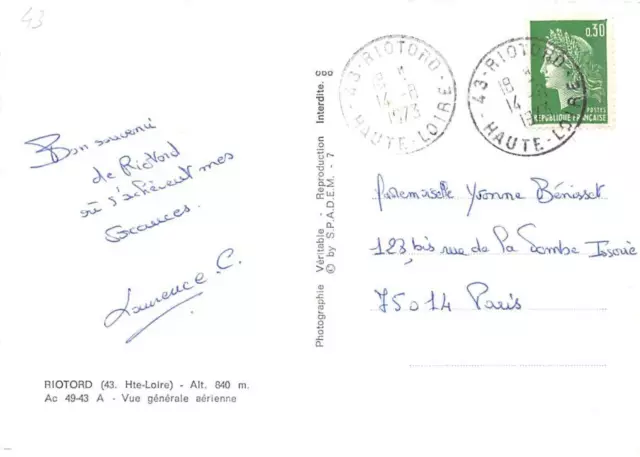 43
Bon souvenir
de Riotord
où s'achèvent mes
vacances.
Laurence C.
RIOTORD (43. Hte-Loire) - Alt. 840 m.
Ac 49-43 A - Vue générale aérienne
Photographie Véritable - Reproduction Interdite.
© by S.P.A.D.E.M. - 7
43 - RIOTORD
18 H
14 - 8
1973
HAUTE-LOIRE
43 - RIOTORD
18 H
14 - 8
1973
HAUTE-LOIRE
0,30
POSTES
REPUBLIQUE FRANÇAISE
Mademoiselle Yvonne Béniset
123 bis rue de la Tombe Issoire
75014 Paris